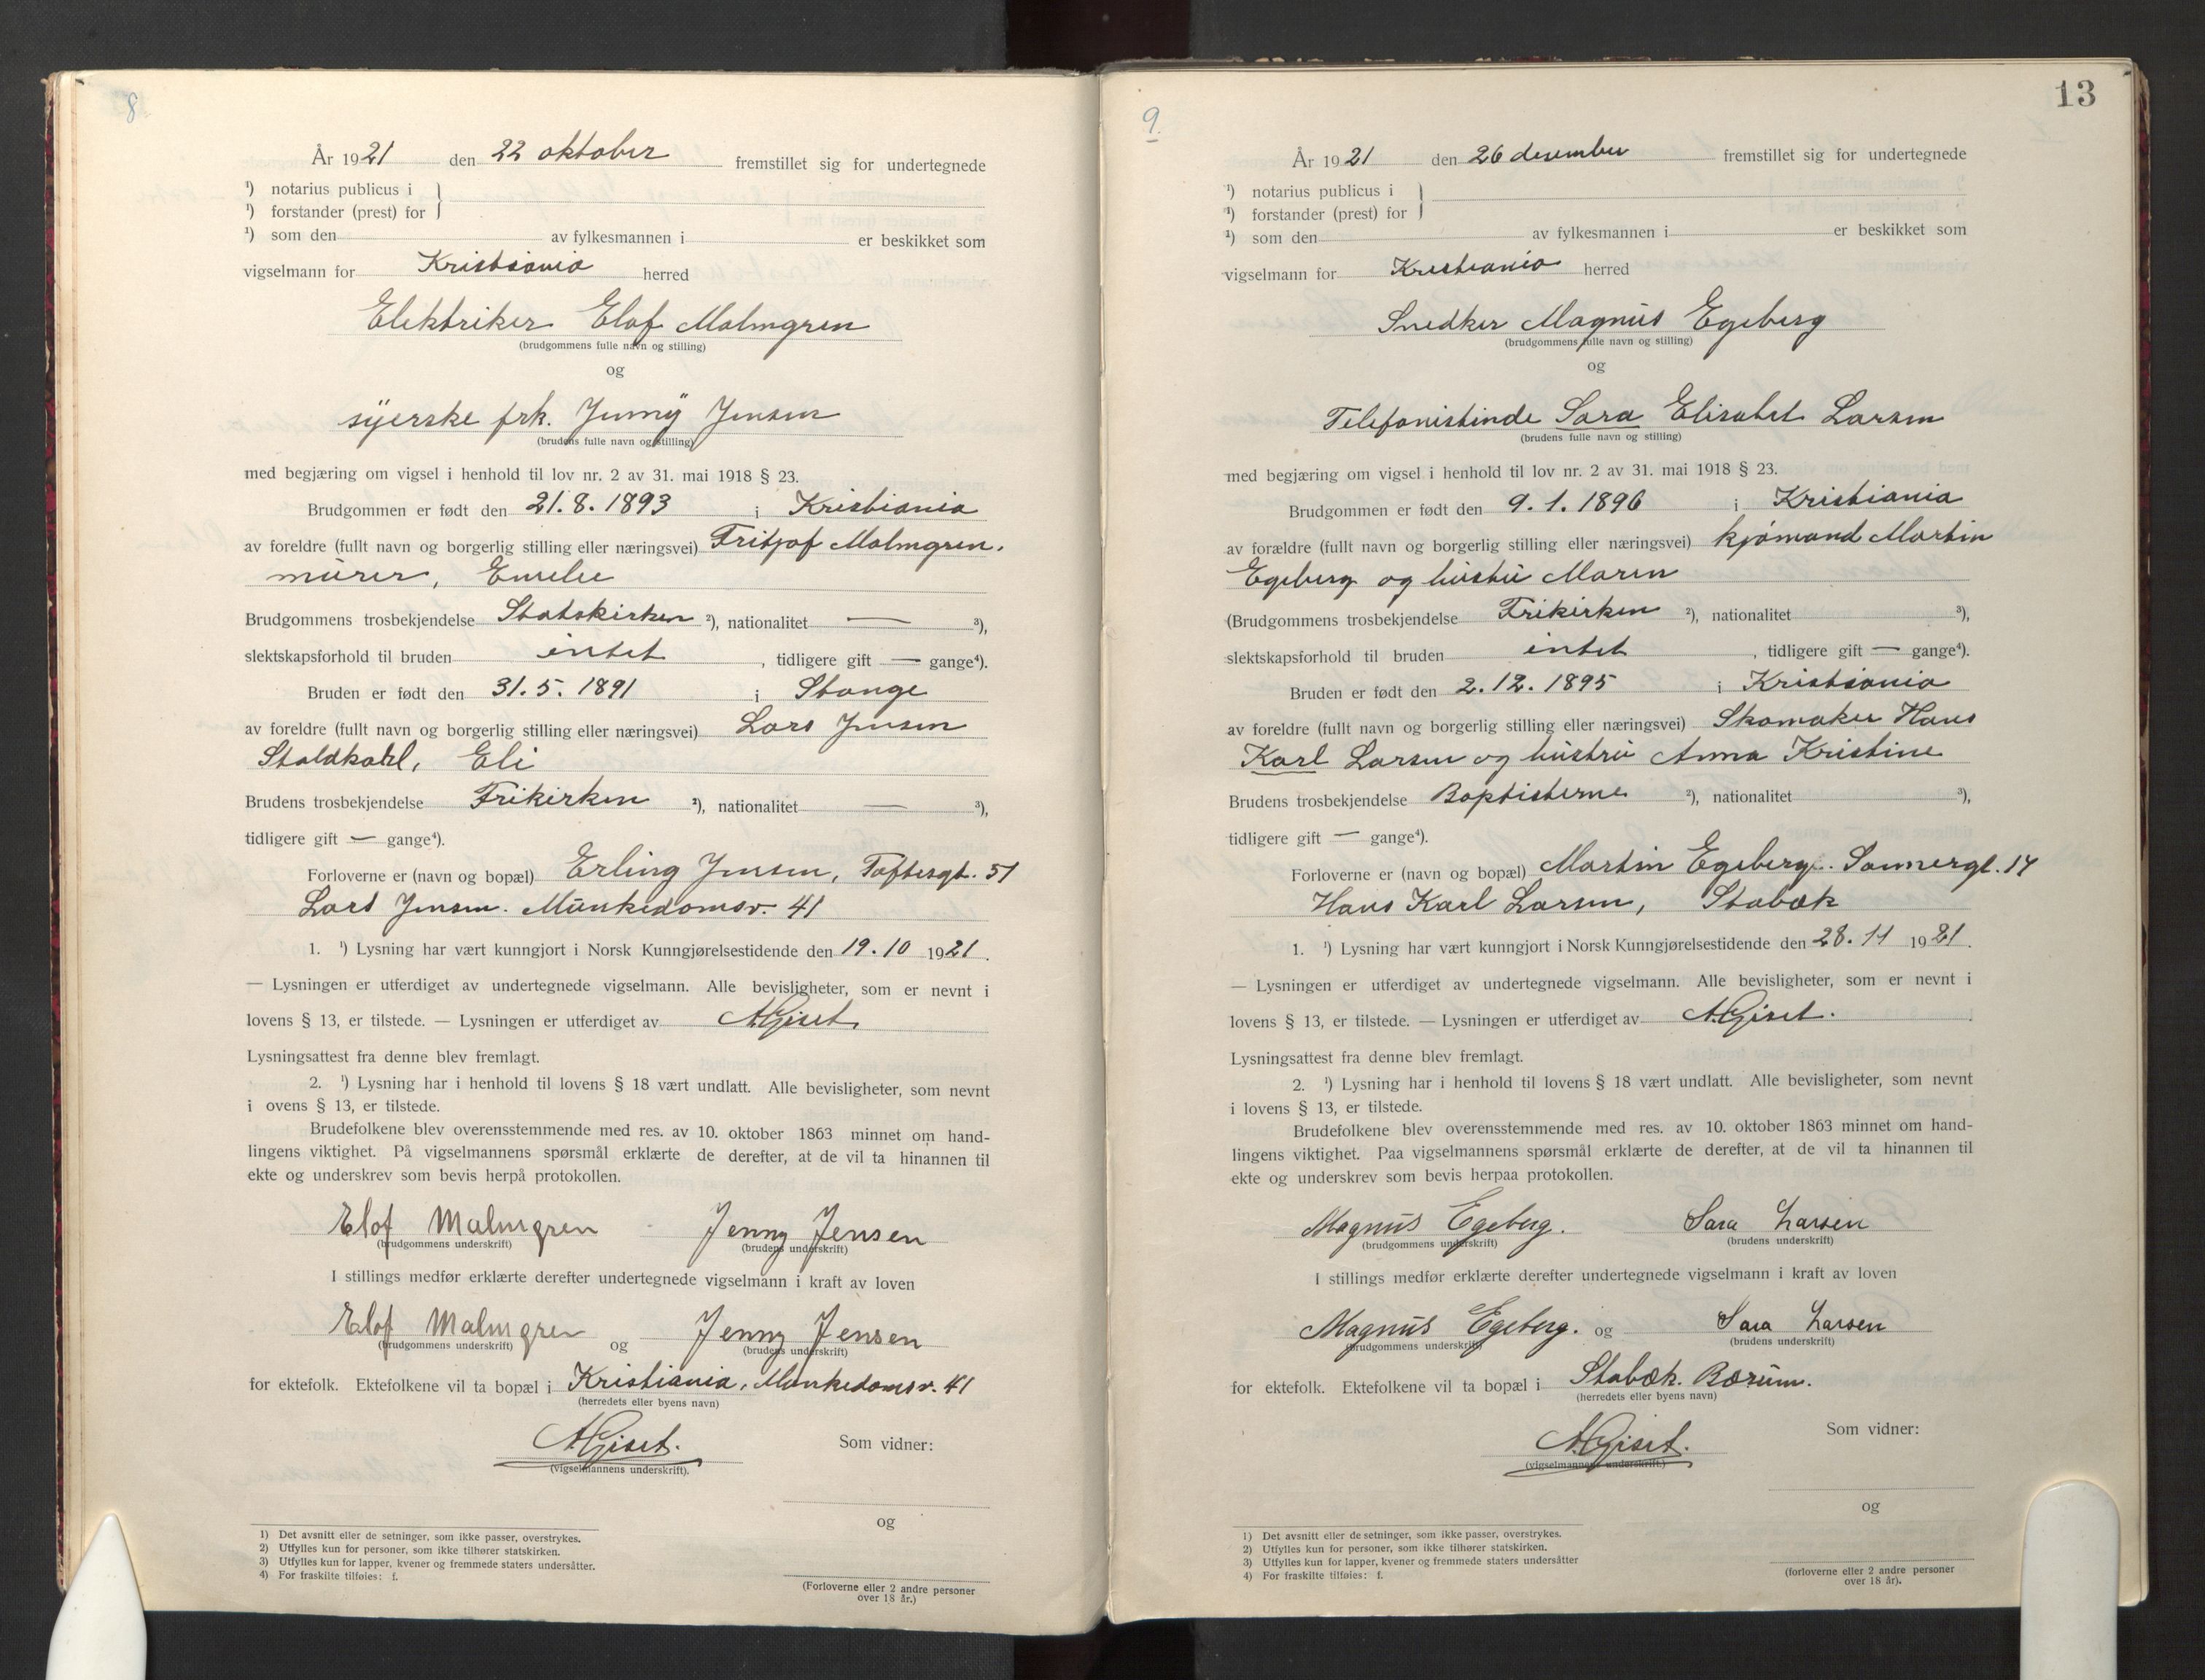 8
År 1921 den 22 oktober fremstillet sig for undertegnede
¹) notarius publicus i
¹) forstander (prest) for
¹) som den av fylkesmannen i er beskikket som
vigselmann for Kristiania herred
Elektriker Elof Malmgren
(brudgommens fulle navn og stilling)
og
syerske frk. Jenny Jensen
(brudens fulle navn og stilling)
med begjæring om vigsel i henhold til lov nr. 2 av 31. mai 1918 § 23.
Brudgommen er født den 21.8.1893 i Kristiania
av foreldre (fullt navn og borgerlig stilling eller næringsvei) Fritjof Malmgren.
murer, Emelie
Brudgommens trosbekjendelse Statskirken ²), nationalitet — ³),
slektskapsforhold til bruden intet, tidligere gift — gange⁴).
Bruden er født den 31.5.1891 i Stange
av foreldre (fullt navn og borgerlig stilling eller næringsvei) Lars Jensen
Staldkarl, Eli
Brudens trosbekjendelse Frikirken ²), nationalitet — ³),
tidligere gift — gange⁴).
Forloverne er (navn og bopæl) Erling Jensen, Toftesgt. 51
Lars Jensen. Munkedamsv. 41
1. ¹) Lysning har vært kunngjort i Norsk Kunngjørelsestidende den 19.10 1921.
— Lysningen er utferdiget av undertegnede vigselmann. Alle bevisligheter, som er nevnt i
lovens § 13, er tilstede. — Lysningen er utferdiget av A. Giset
Lysningsattest fra denne blev fremlagt.
2. ¹) Lysning har i henhold til lovens § 18 vært undlatt. Alle bevisligheter, som nevnt
i ovens § 13, er tilstede.
Brudefolkene blev overensstemmende med res. av 10. oktober 1863 minnet om hand-
lingens viktighet. På vigselmannens spørsmål erklærte de derefter, at de vil ta hinannen til
ekte og underskrev som bevis herpå protokollen.
Elof Malmgren Jenny Jensen
(brudgommens underskrift) (brudens underskrift)
I stillings medfør erklærte derefter undertegnede vigselmann i kraft av loven
Elof Malmgren og Jenny Jensen
(brudgommens underskrift) (brudens underskrift)
for ektefolk. Ektefolkene vil ta bopæl i Kristiania, Munkedamsv. 41
(herredets eller byens navn)
A. Giset.
(vigselmannens underskrift).
Som vidner:
og
1) Det avsnitt eller de setninger, som ikke passer, overstrykes.
2) Utfylles kun for personer, som ikke tilhører statskirken.
3) Utfylles kun for lapper, kvener og fremmede staters undersåtter.
4) For fraskilte tilføies: f.
(Forloverne eller 2 andre personer
over 18 år.)
9.
13
År 1921 den 26 desember fremstillet sig for undertegnede
¹) notarius publicus i
¹) forstander (prest) for
¹) som den av fylkesmannen i er beskikket som
vigselmann for Kristiania herred
Snedker Magnus Egeberg
(brudgommens fulle navn og stilling)
og
Telefonistinde Sara Elisabet Larsen
(brudens fulle navn og stilling)
med begjæring om vigsel i henhold til lov nr. 2 av 31. mai 1918 § 23.
Brudgommen er født den 9.1.1896 i Kristiania
av forældre (fullt navn og borgerlig stilling eller næringsvei) kjømand Martin
Egeberg og hustru Maren
(Brudgommens trosbekjendelse Frikirken ²), nationalitet ³),
slektskapsforhold til bruden intet, tidligere gift — gange⁴).
Bruden er født den 2.12.1895 i Kristiania
av foreldre (fullt navn og borgerlig stilling eller næringsvei) Skomaker Hans
Karl Larsen og hustru Anna Kristine
Brudens trosbekjendelse Baptisterne ²), nationalitet ³),
tidligere gift — gange⁴).
Forloverne er (navn og bopæl) Martin Egeberg. Sannergt. 14
Hans Karl Larsen, Stabæk
1. ¹) Lysning har vært kunngjort i Norsk Kunngjørelsestidende den 28.11 1921.
— Lysningen er utferdiget av undertegnede vigselmann. Alle bevisligheter, som er nevnt i
lovens § 13, er tilstede. — Lysningen er utferdiget av A. Giset.
Lysningsattest fra denne blev fremlagt.
2. ¹) Lysning har i henhold til lovens § 18 vært undlatt. Alle bevisligheter, som nevnt
i lovens § 13, er tilstede.
Brudefolkene blev overensstemmende med res. av 10. oktober 1863 minnet om hand-
lingens viktighet. Paa vigselmannens spørsmål erklærte de derefter, at de vil ta hinannen til
ekte og underskrev som bevis herpaa protokollen.
Magnus Egeberg. Sara Larsen
(brudgommens underskrift) (brudens underskrift)
I stillings medfør erklærte derefter undertegnede vigselmann i kraft av loven
Magnus Egeberg. og Sara Larsen
(brudgommens underskrift) (brudens underskrift)
for ektefolk. Ektefolkene vil ta bopæl i Stabæk. Bærum.
(herredets eller byens navn)
A. Giset.
(vigselmannens underskrift.)
Som vidner:
og
1) Det avsnitt eller de setninger, som ikke passer, overstrykes.
2) Utfylles kun for personer, som ikke tilhører statskirken.
3) Utfylles kun for lapper, kvener og fremmede staters undersåtter
4) For fraskilte tilføies: f.
(forloverne eller 2 andre personer
over 18 år).